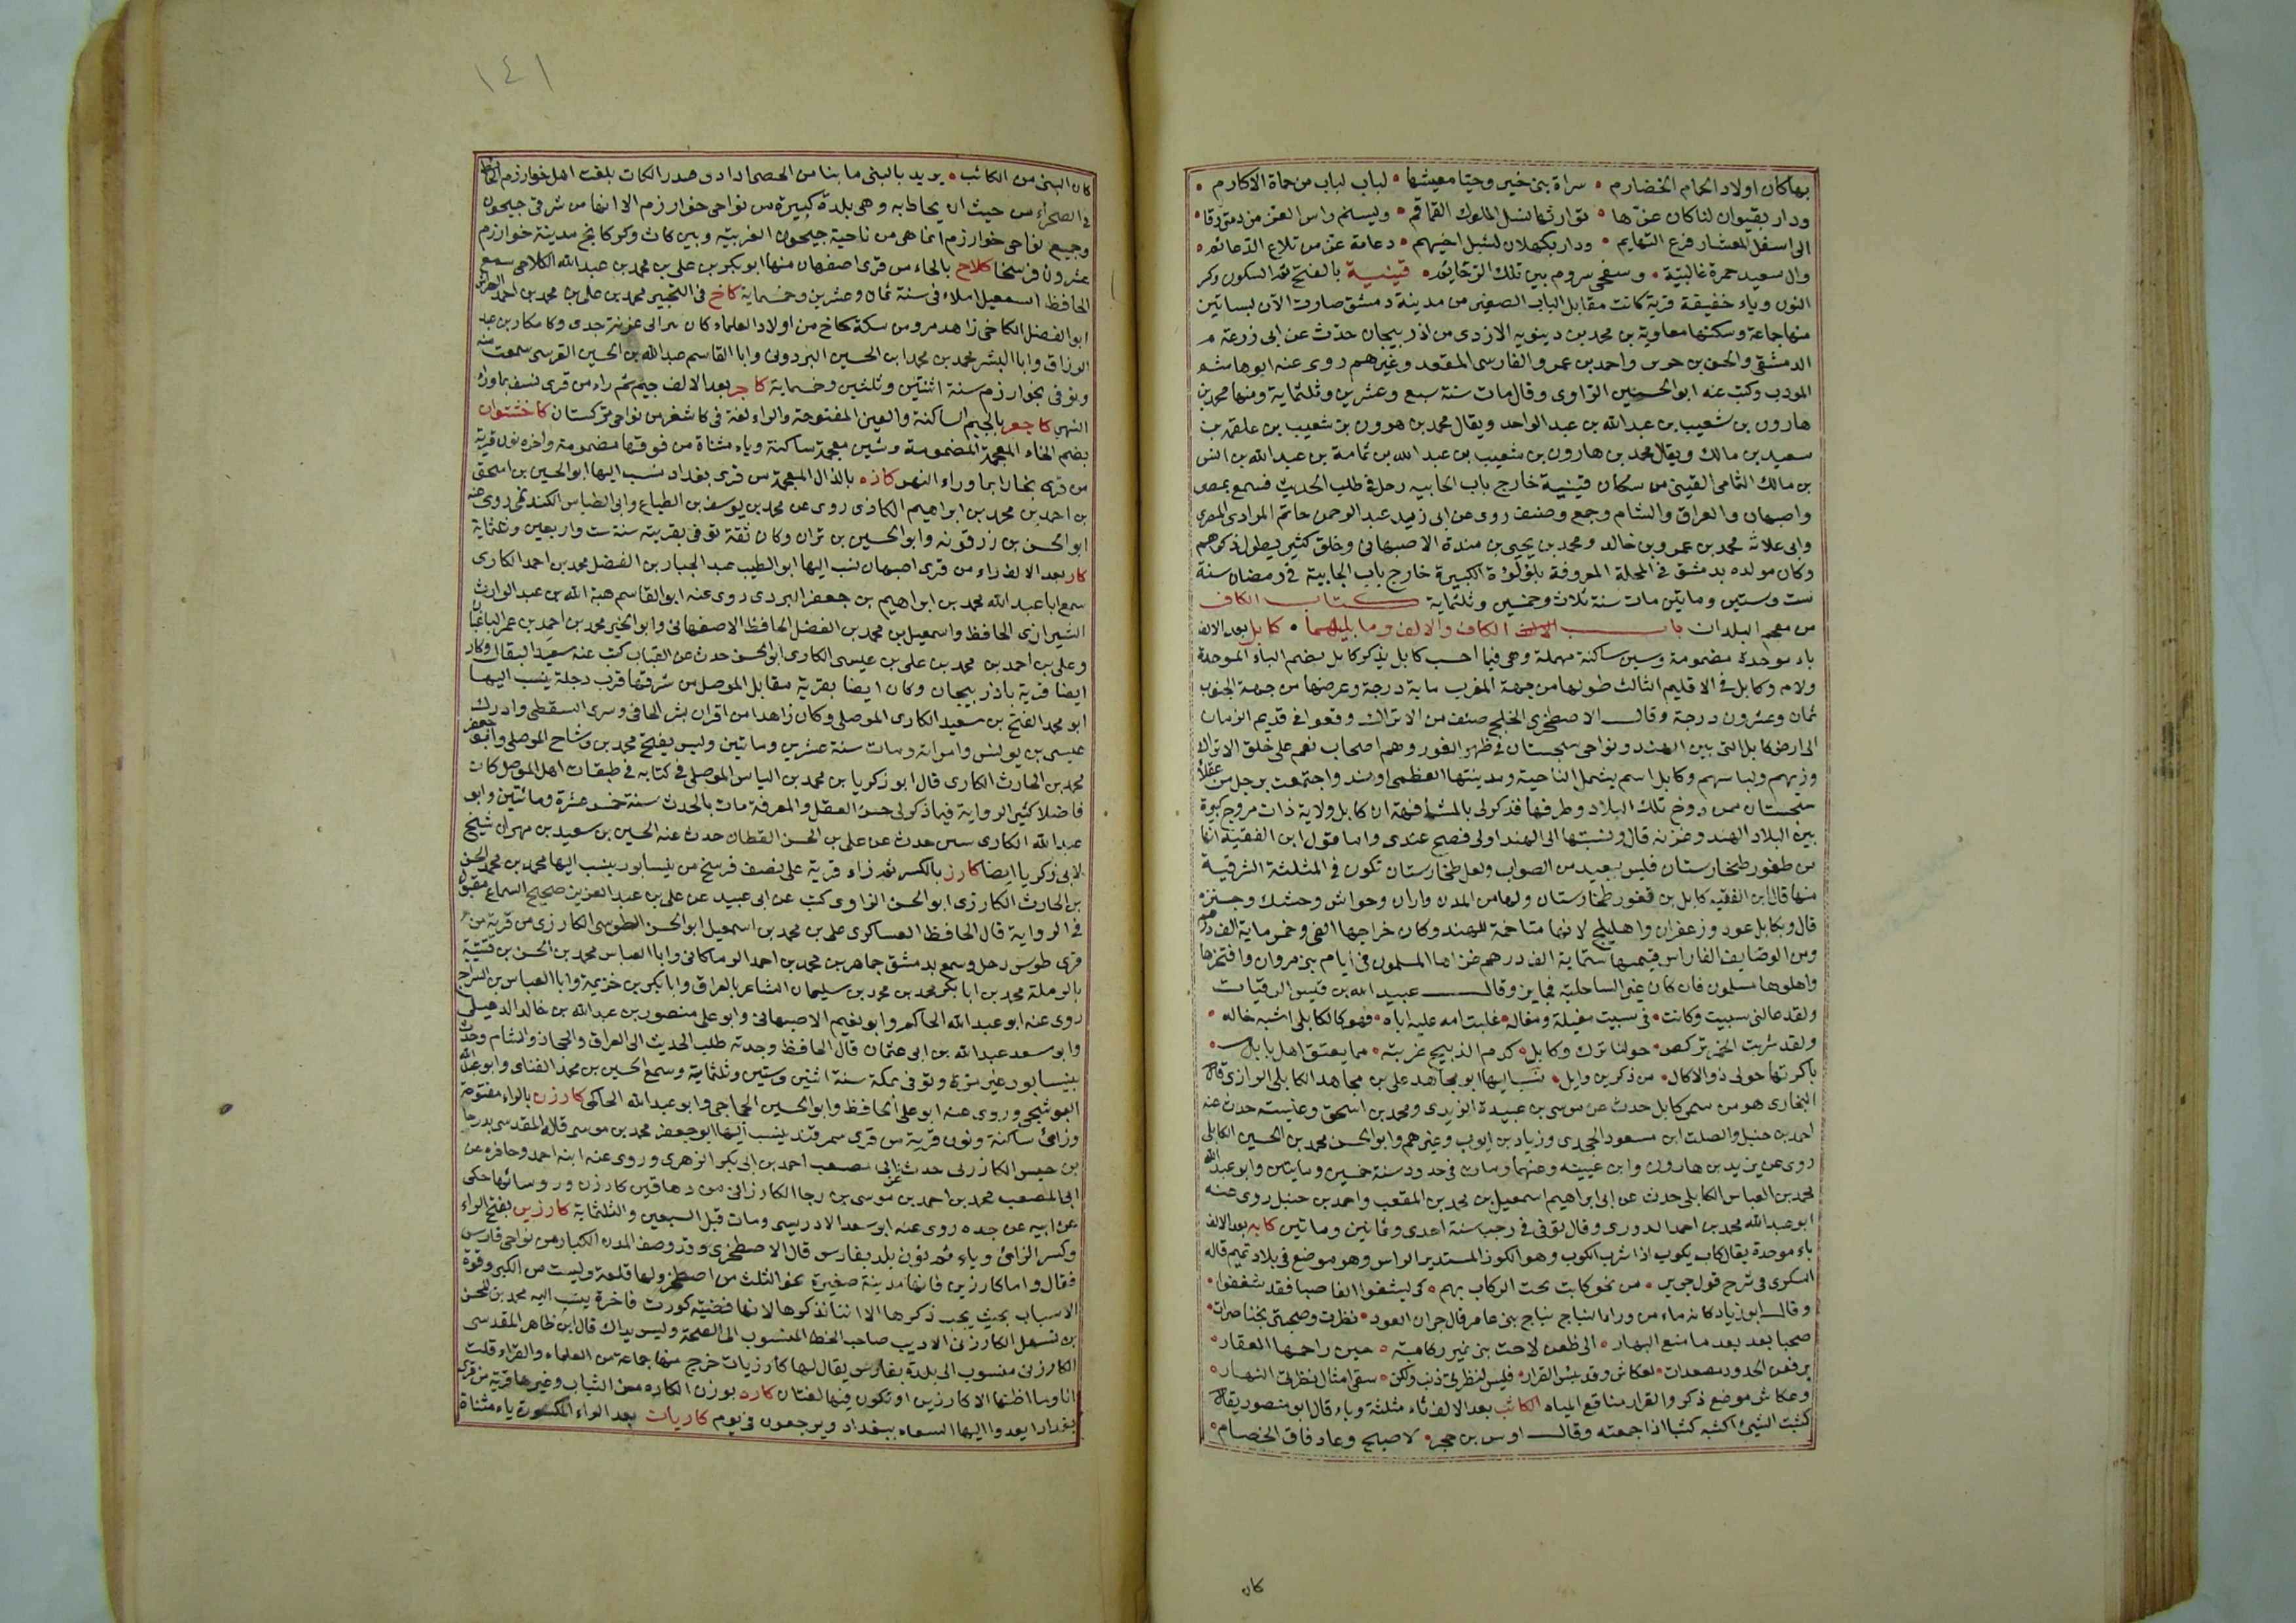 بها كان اولاد الحمام الخضارم • سراة بنى خير وحيا معيشها • لباب لباب من حماة الاكارم •
ودار بقينوان لنا كان عزها • توارثها نسل الملوك القماقم • وليسلم راس العز من دمتى رقا •
الى اسفل المعشار فرع التهايم • ودار بكهلان لشبل اخيهم • دعامة عز من تلاع الدعائم •
وال سعيد حمرة غالبية • وسفحى سروم بين تلك الرخايم • قينية بالفتح ثم السكون وكر
النون وياء خفيفة قرية كانت مقابل الباب الصغير من مدينة دمشق صارت الآن بساتين
منها جماعة وسكنها معاوية بن محمد بن دينويه الازدى من اذربيجان حدث عن ابى زرعة
الدمشقى والحسن بن جرير واحمد بن عمرو الفارسى المقعد وغيرهم روى عنه ابو هاشم
المودب وكتب عنه ابو الحسين الرازى وقال مات سنة سبع وعشرين وثلثماية ومنها محمد بن
هارون بن شعيب بن عبد الله بن عبد الواحد ويقال محمد بن هرون بن شعيب بن علقمة بن
سعيد بن مالك ويقال محمد بن هارون بن شعيب بن عبد الله بن ثمامة بن عبد الله بن انس
بن مالك الثمامى القينى من سكان قينية خارج باب الجابيه رحل فى طلب الحديث فسمع بمصر
واصبهان والعراق والشام وجمع وصنف روى عن ابى زبيد عبد الرحمن حاتم المرادى المصرى
وابى علاثة محمد بن عمرو بن خالد ومحمد بن يحيى بن مندة الاصبهانى وخلق كثير يطول ذكرهم
وكان مولده بدمشق فى المحلة المعروفة بلؤلؤة الكبيرة خارج باب الجابية فى رمضان سنة
ست وستين وماتين مات سنة ثلاث وخمسين وثلثماية كتاب الكاف
من معجم البلدان باب الكاف والالف وما يليهما • كابل بعد الالف
باء موحدة مضمومة وسين ساكنة مهملة وهى فيما احسب كابل يذكر كابل بضم الباء الموحدة
ولام وكابل فى الاقليم الثالث طولها من جهة المغرب ماية درجة وعرضها من جهة الجنوب
ثمان وعشرون درجة وقال الاصطخرى الخلج صنف من الاتراك وقعوا فى قديم الزمان
الى ارض كابل التى بين الهند ونواحى سجستان فى ظهر الغور وهم اصحاب نعم على خلق الاتراك
وزيهم ولباسهم وكابل اسم يشمل الناحية ومدينتها العظمى اوهند واجتمعت برجل من عقلاء
سجستان ممن دوخ تلك البلاد وطرقها فذكر لى بالمشافهة ان كابل ولاية ذات مروج كبيرة
بين البلاد الهند وغزنه قال ونسبتها الى الهند اولى فصح عندى واما قول ابن الفقيه انها
من طغور طخارستان فليس ببعيد من الصواب ولعل طخارستان تكون فى المثلثة الشرقية
منها قال ابن الفقيه كابل بن قغور طخارستان ولها من المدن واران وخواش وخشك وجنزه
قال وبكابل عود وزعفران واهليلج لانها متاخمة للهند وكان خراجها الفى وخمسماية الف درهم
ومن الوصايف الفا راس قيمتها ستماية الف درهم غزاها المسلمون فى ايام بنى مروان وافتتحوها
واهلوها مسلمون فان كان غير الساحلية فجايز وقال عبيد الله بن قيس الرقيات
ولقد عالنى سبيت وكانت • فى سبيت مغيلة ومغاله • غلبت امه عليه اباه • فهو كالكابلى اشبه خاله •
ولقد شربت الخمر تركض • حولنا ترك وكابل • كدم الذبيح غريبة • مما يعتق اهل بابل •
باكرتها حولى ذوو الاكال • من ذكر بن وايل • نسب اليها ابو مجاهد على بن مجاهد الكابلى الرازى قال
البخارى هو من سمى كابل حدث عن موسى بن عبيدة الزيدى ومحمد بن اسحق وعنبسه حدث عنه
احمد بن حنبل والصلت ابن مسعود الجحدرى وزياد بن ايوب وغيرهم وابو الحسن محمد بن الحسين الكابلى
روى عن يزيد بن هارون وابن عيينه وغيرهما ومات فى حدود سنة خمسين وماتين وابو عبد الله
محمد بن العباس الكابلى حدث عن ابى ابراهيم اسمعيل بن محمد بن المقعب واحمد بن حنبل روى عنه
ابو عبد الله محمد بن احمد الدورى وقال توفى فى رجب سنة احدى وثمانين وماتين كابه بعد الالف
باء موحدة يقال كاب يكوب اذا شرب الكوب وهو الكوز المستدير الراس وهو موضع فى بلاد تميم قاله
السكرى فى شرح قول جرير • من نحو كابت تحت الركاب بهم • كى يشغفوا الفا صبا فقد شغفوا •
وقال ابو زياد كابه ماء من وراء النباج نباج بنى عامر قال جران العود • نظرت وصحبتى بخناصرات •
ضحيا بعد ما متع النهار • الى ظعن لاحت بنى نمير بكابة • حين زاحمها العقار •
يرفعن الخدور مصعدات • لعكاش وقد يئس القرار • فليس لنظرتى ذنب ولكن • سقى امثال نظرتى النهار •
وعكاش موضع ذكر والقرار مناقع المياه الكاثب بعد الالف ثاء مثلثة وباء قال ابو منصور يقال
كثبت الشئ اكثبه كثبا اذا جمعته وقال اوس بن حجر • لاصبح رتما دقاق الخصام •
كان
١٤١
كان النبى من الكاثب • يريد بالنبى ما نبا من الحصى اذا دق وصدر الكاث بلغت اهل خوارزم الحائط
فى الصحراء من حيث ان يحاط به وهى بلدة كبيرة من نواحى خوارزم الا انها من شرقى جيحون
وجميع نواحى خوارزم انما هى من ناحية جيحون الغربية وبين كاث وكركانج مدينة خوارزم
عشرون فرسخا كلاح بالحاء من قرى اصفهان منها ابو بكر بن على بن محمد بن عبد الله الكلاحى سمع
الحافظ اسمعيل املاء فى سنة ثمان وعشرين وخمسماية كاخ فى التحبير محمد بن على بن محمد بن احمد
ابو الفضل الكاخى زاهد مرو من سكة كاخ من اولاد العلماء كان يرالى عزيزة جدى وكامكار بن عبد
الرزاق وابا البشر محمد بن محمد ابن الحسين البزدوى وابا القاسم عبد الله بن الحسين القرسى سمعت منه
وتوفى بخوارزم سنة اثنتين وثلثين وخمسماية كاجر بعد الالف جيم ثم راء من قرى نسف بماوراء
النهر كاجغر بالجيم الساكنة والغين المفتوحة والراء لغة فى كاشغر من نواحى تركستان كاخشتوان
بضم الخاء المعجمة المضمومة وشين معجمة ساكنة وباء مثناة من فوقها مضمومة واخره نون قرية
من قرى بخارا بما وراء النهر كاذه بالذال المعجمة من قرى بغداد نسب اليها ابو الحسين بن اسحق
بن احمد بن محمد بن ابراهيم الكاذى روى عن محمد بن يوسف بن الطباع وابى العباس الكديمى روى عنه
ابو الحسن بن زرقونه وابو الحسين بن بشران وكان ثقة توفى بقريته سنة ست واربعين وثلثماية
كار بعد الالف راء من قرى اصبهان نسب اليها ابو الطيب عبد الجبار بن الفضل محمد بن احمد الكارى
سمع ابا عبد الله محمد بن ابراهيم بن جعفر اليزدى روى عنه ابو القاسم هبة الله بن عبد الوارث
الشيرازى الحافظ واسمعيل بن محمد بن الفضل الحافظ الاصفهانى وابو الخير محمد بن احمد بن عمر الباغبان
وعلى بن احمد بن محمد بن على بن عيسى الكارى ابو الحسن حدث عن القباب كتب عنه سعيد البقال وكار
ايضا قرية باذربيجان وكان ايضا بقرية مقابل الموصل من شرقيها قرب دجلة ينسب اليها
ابو محمد الفتح بن سعيد الكارى الموصلى وكان زاهدا من اقران بشر الحافى وسرى السقطى وادرك
عيسى بن يونس وامراته ومات سنة عشرين وماتين وليس بفتح محمد بن وشاح الموصلى وابو جعفر
محمد بن الحارث الكارى قال ابو زكريا بن محمد بن الياس الموصلى فى كتابه فى طبقات اهل الموصل كان
فاضلا كثير الرواية فيما ذكر لى حسن العقل والمعرفة مات بالحدث سنة خمس عشرة ومائتين وابو
عبد الله الكارى حدث عن على بن الحسن القطان حدث عنه الحسين بن سعيد بن مهران شيخ
لابى زكريا ايضا كارز بالكسر ثم زاء قرية على نصف فرسخ من نيسابور ينسب اليها محمد بن محمد الحسن
بن الحارث الكارزى ابو الحسن الراوى كتب عن ابى عبيد عن على بن عبد العزيز صحيح السماع مقبول
فى الرواية قال الحافظ العساكرى على بن محمد بن اسمعيل ابو الحسن الطوسى الكارزى من قرية من
قرى طوس رحل وسمع بدمشق جماهر بن محمد بن احمد الرملكانى وابا العباس محمد بن الحسن بن قتيبة
بالرملة محمد بن ابا بكر محمد بن محمد بن سليمان الشاعر بالعراق وابا بكر بن خزيمة وابا العباس بن السراج
روى عنه ابو عبد الله الحاكم وابو نعيم الاصبهانى وابو على منصور بن عبد الله بن خالد الذهلى
وابو سعد عبد الله بن ابى عثمان قال الحافظ وجدته طلب الحديث الى العراق والحجاز والشام وحدث
بنيسابور غير مرة وتوفى بمكة سنة اثنتين وستين وثلثماية وسمع الحسين بن محمد القبانى وابو عبد الله
البوشنجى وروى عنه ابو على الحافظ وابو الحسين الحجاجى وابو عبد الله الحاكم كارزن بالراء مفتوحة
وزاى ساكنة ونون قرية من قرى سمرقند ينسب اليها ابو جعفر محمد بن موسى قاله المقدسى بدرجا
بن حبس الكارزنى حدث عن ابى مصعب احمد بن ابى بكر الزهرى وروى عنه ابنه احمد وحافده عن
ابى المصعب محمد بن احمد بن موسى بن رجا الكارزنى من دهاقين كارزن وروسائها حكى
عن ابيه عن جده روى عنه ابو سعد الادريسى ومات قبل السبعين والثلثماية كارزين بفتح الراء
وكسر الزاى وياء ثم نون بلد بفارس قال الاصطخرى وقد وصف المدن الكبار من نواحى فارس
فقال واما كارزين فانها مدينة صغيرة نحو الثلث من اصطخر ولها قلعة وليست من الكبر وقوة
الاسباب بحيث يجب ذكرها الا اننا نذكرها لانها قصبة كورت فاخرة ينسب اليه محمد بن الحسن
بن سهل الكارزنى الاديب صاحب الخط المنسوب الى الصحة وليس بذاك قال ابن طاهر المقدسى
الكارزنى منسوب الى بلدة بفارس يقال لها كارزيات خرج منها جماعة من العلماء والقراء قلت
انا وما اظنها الا كارزين او تكون فيها لغتان كاره بوزن الكاره من الثياب وغيرها قرية من قرى
بغداد ايعدوا اليها السعاه ببغداد ويرجعون فى يوم كاريات بعد الراء المكسورة ياء مثناة